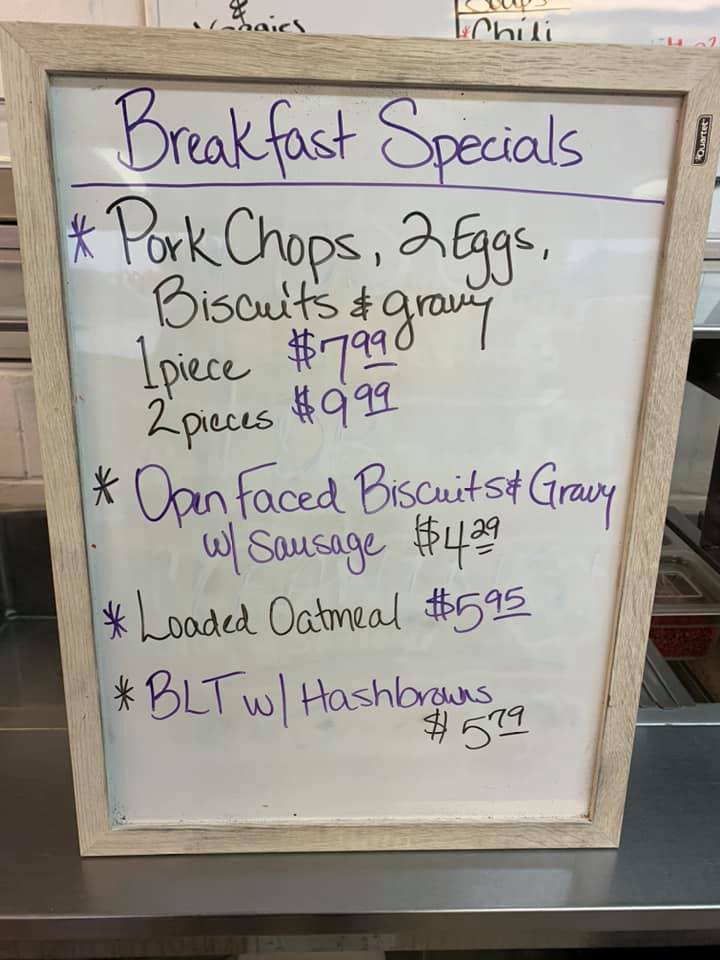 &
Veggies
Soups
*Chili
Quartet
Breakfast Specials
* Pork Chops, 2 Eggs,
Biscuits & gravy
1 piece $7.99
2 pieces $9.99
* Open Faced Biscuits & Gravy
w/ Sausage $4.29
* Loaded Oatmeal $5.95
* BLT w/ Hashbrowns
$5.79